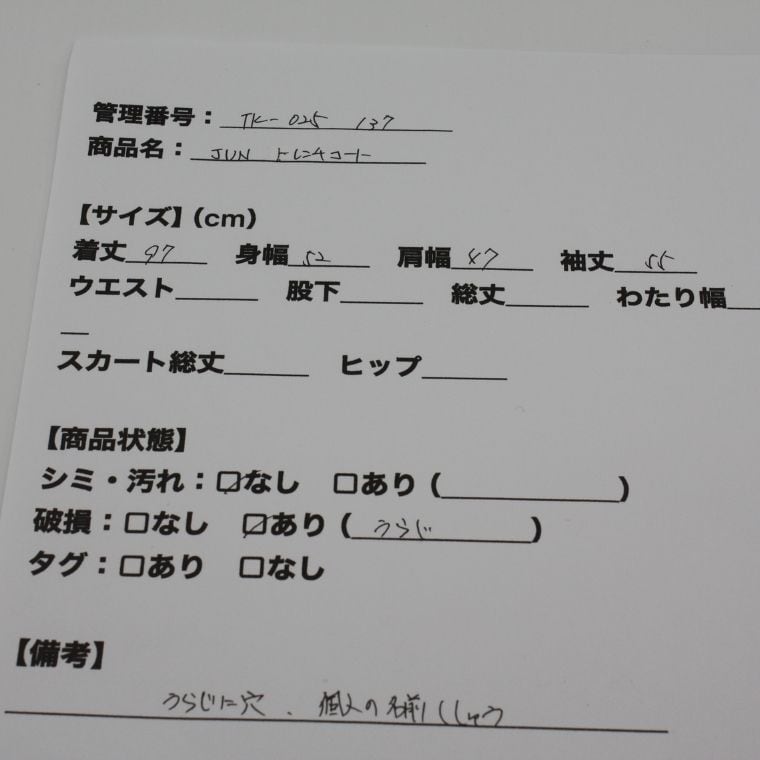 管理番号：TK-025 137
商品名：JUN トレンチコート
【サイズ】(cm)
着丈 97 身幅 52 肩幅 47 袖丈 55
ウエスト 股下 総丈 わたり幅
スカート総丈 ヒップ
【商品状態】
シミ・汚れ：☑なし □あり ( )
破損：□なし ☑あり (うらじ)
タグ：□あり □なし
【備考】
うらじに穴、個人の名前ししゅう